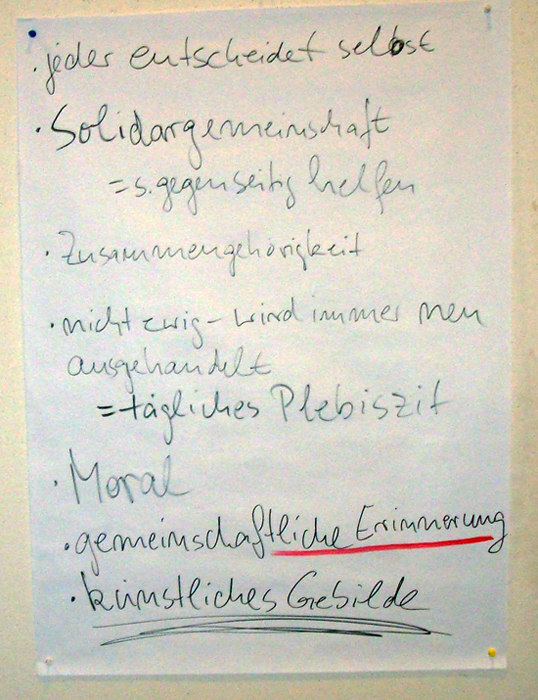 · jeder entscheidet selbst
· Solidargemeinschaft
= s. gegenseitig helfen
· Zusammengehörigkeit
· nicht ewig – wird immer neu
ausgehandelt
= tägliches Plebiszit
· Moral
· gemeinschaftliche Erinnerung
· künstliches Gebilde